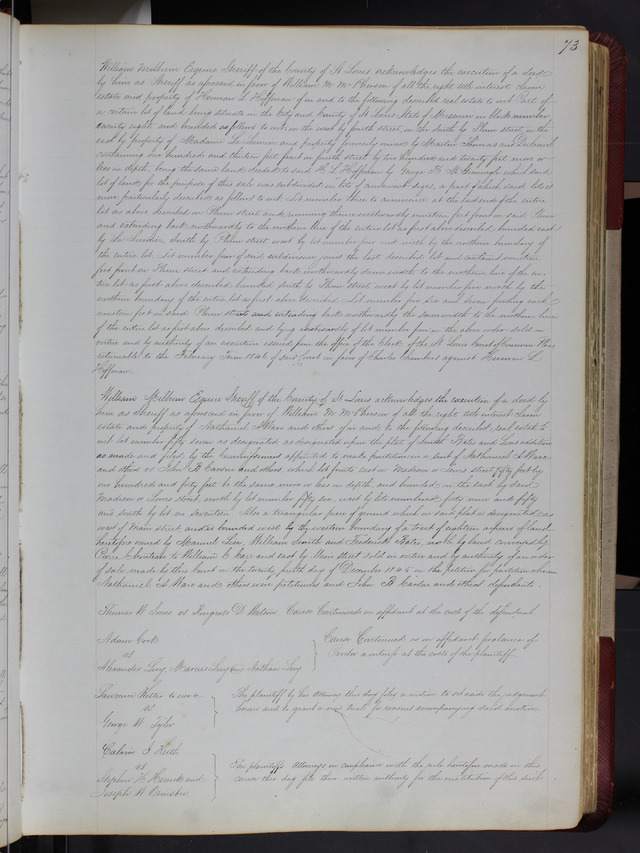 73
William Milburn Esquire Sheriff of the County of St Louis acknowledges the execution of a deed
by him as Sheriff as aforesaid in favor of William M McPherson of all the right title interest claim
estate and property of Herman L Hoffman of in and to the following described real estate to wit Part of
a certain lot of land being situate in the City and County of St Louis State of Missouri in block number
twenty eight and bounded as follows to wit on the west by fourth street, on the South by Plum street, on the
east by property of Madame La and property formerly owned by Martin Thomas and
containing one hundred and thirteen feet front on fourth street by two hundred and twenty feet more or
less in depth, being the same land deeded to said H L Hoffman by George H which said
lot of land for the purpose of this sale was subdivided in lots of convenient size, a part of which said lots is
more particularly described as follows to wit. Lot number three to commence at the east end of the entire
lot as above described on Plum street and running thence westwardly nineteen feet front on said Plum
and extending back northwardly to the northern line of the entire lot as first above described bounded east
by La South by Plum street west by lot number four and north by the northern boundary of
the entire lot. Lot number four of said subdivision joins the last described lot and contains nineteen
feet front on Plum street and extending back northwardly same width to the northern line of the en-
tire lot as first above described bounded south by Plum street, west by lot number five north by the
northern boundary of the entire lot as first above described. Lot number five six and seven fronting each
nineteen feet on said Plum street and extending back northwardly the same width to the northern line
of the entire lot as first above described and lying westwardly of lot number four in the above order sold in
virtue and by authority of an execution issued from the office of the Clerk of the St Louis Court of Common Pleas
returnable to the February Term 1846 of said Court in favor of Charles Chambers against Herman L
Hoffman.
William Milburn Esquire Sheriff of the County of St Louis acknowledges the execution of a deed by
him as Sheriff as aforesaid in favor of William M McPherson of all the right title interest claim
estate and property of Nathaniel A Ware and others of in and to the following described real estate to
wit lot number fifty seven as designated as designated upon the plat of Smith Bates and Lisas addition
as made and filed by the commissioners appointed to make partition in a suit of Nathaniel A Ware
and others vs John B Carson and others which lot fronts east on Madison or Lewis street fifty feet by
one hundred and forty feet be the same more or less in depth and bounded on the east by said
Madison or Lewis street, north by lot number fifty six, west by lots numbered forty nine and fifty
and south by lot no seventeen. Also a triangular piece of ground which on said plat is designated as
west of Main street, and is bounded west by the western boundary of a tract of eighteen arpens of land
heretofore owned by Manuel Lisa, William Smith and Frederick Bates, north by land conveyed by
Pierre Chouteau to William C Carr and east by Main street sold in virtue and by authority of an order
of sale made by this Court on the twenty fourth day of December 1845 in the Petition for partition wherein
Nathaniel A Ware and others were petitioners and John B Carson and others defendants.
Thomas W Jones vs D Walton Cause Continued on affidavit at the cost of the defendant.
Adam Cook
vs
Alexander Levy Marcus Levy and Nathan Levy
Cause Continued as on affidavit for absence of
a witness at the costs of the plaintiff.
Lawrence Ritter to use &c
vs
George W Tyler
The plaintiff by his attorney this day files a motion to set aside the judgment
herein and to grant a new trial for reasons accompanying said motion.
Calvin J Keith
vs
Stephen W and
Joseph W Ormsbee
The plaintiffs attorneys in compliance with the rule heretofore made in this
cause this day file their written authority for the institution of this suit.